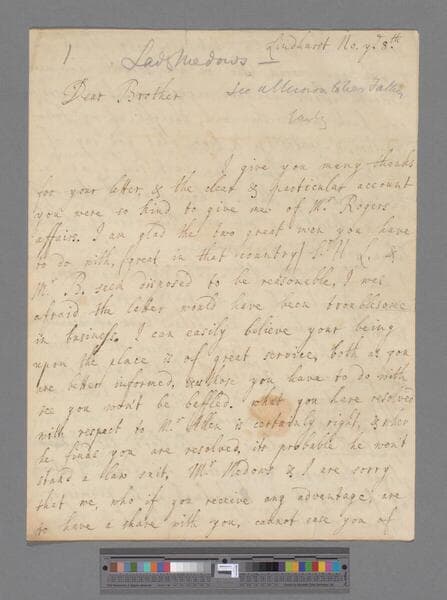 1
Lady Medows —
Lindhurst No. ye 8th
Dear Brother
See allusion to her Father
I give you many thanks
for your letter, & the clear & particular account
you were so kind to give me of Mr. Rogers
affairs. I am glad the two great men you have
to do with, (great in that country) Sr. H L. &
Mr. B. seem disposed to be reasonable, I was
afraid the latter would have been troublesome
in business. I can easily believe your being
upon the place is of great service, both as you
are better informed, & those you have to do with
see you won't be baffled. what you have resolved
with respect to Mr. Allen is certainly right, & when
he finds you are resolved, its probable he won't
stand a law suit. Mr Medows & I are sorry
that we, who if you receive any advantage, are
to have a share with you, cannot ease you of